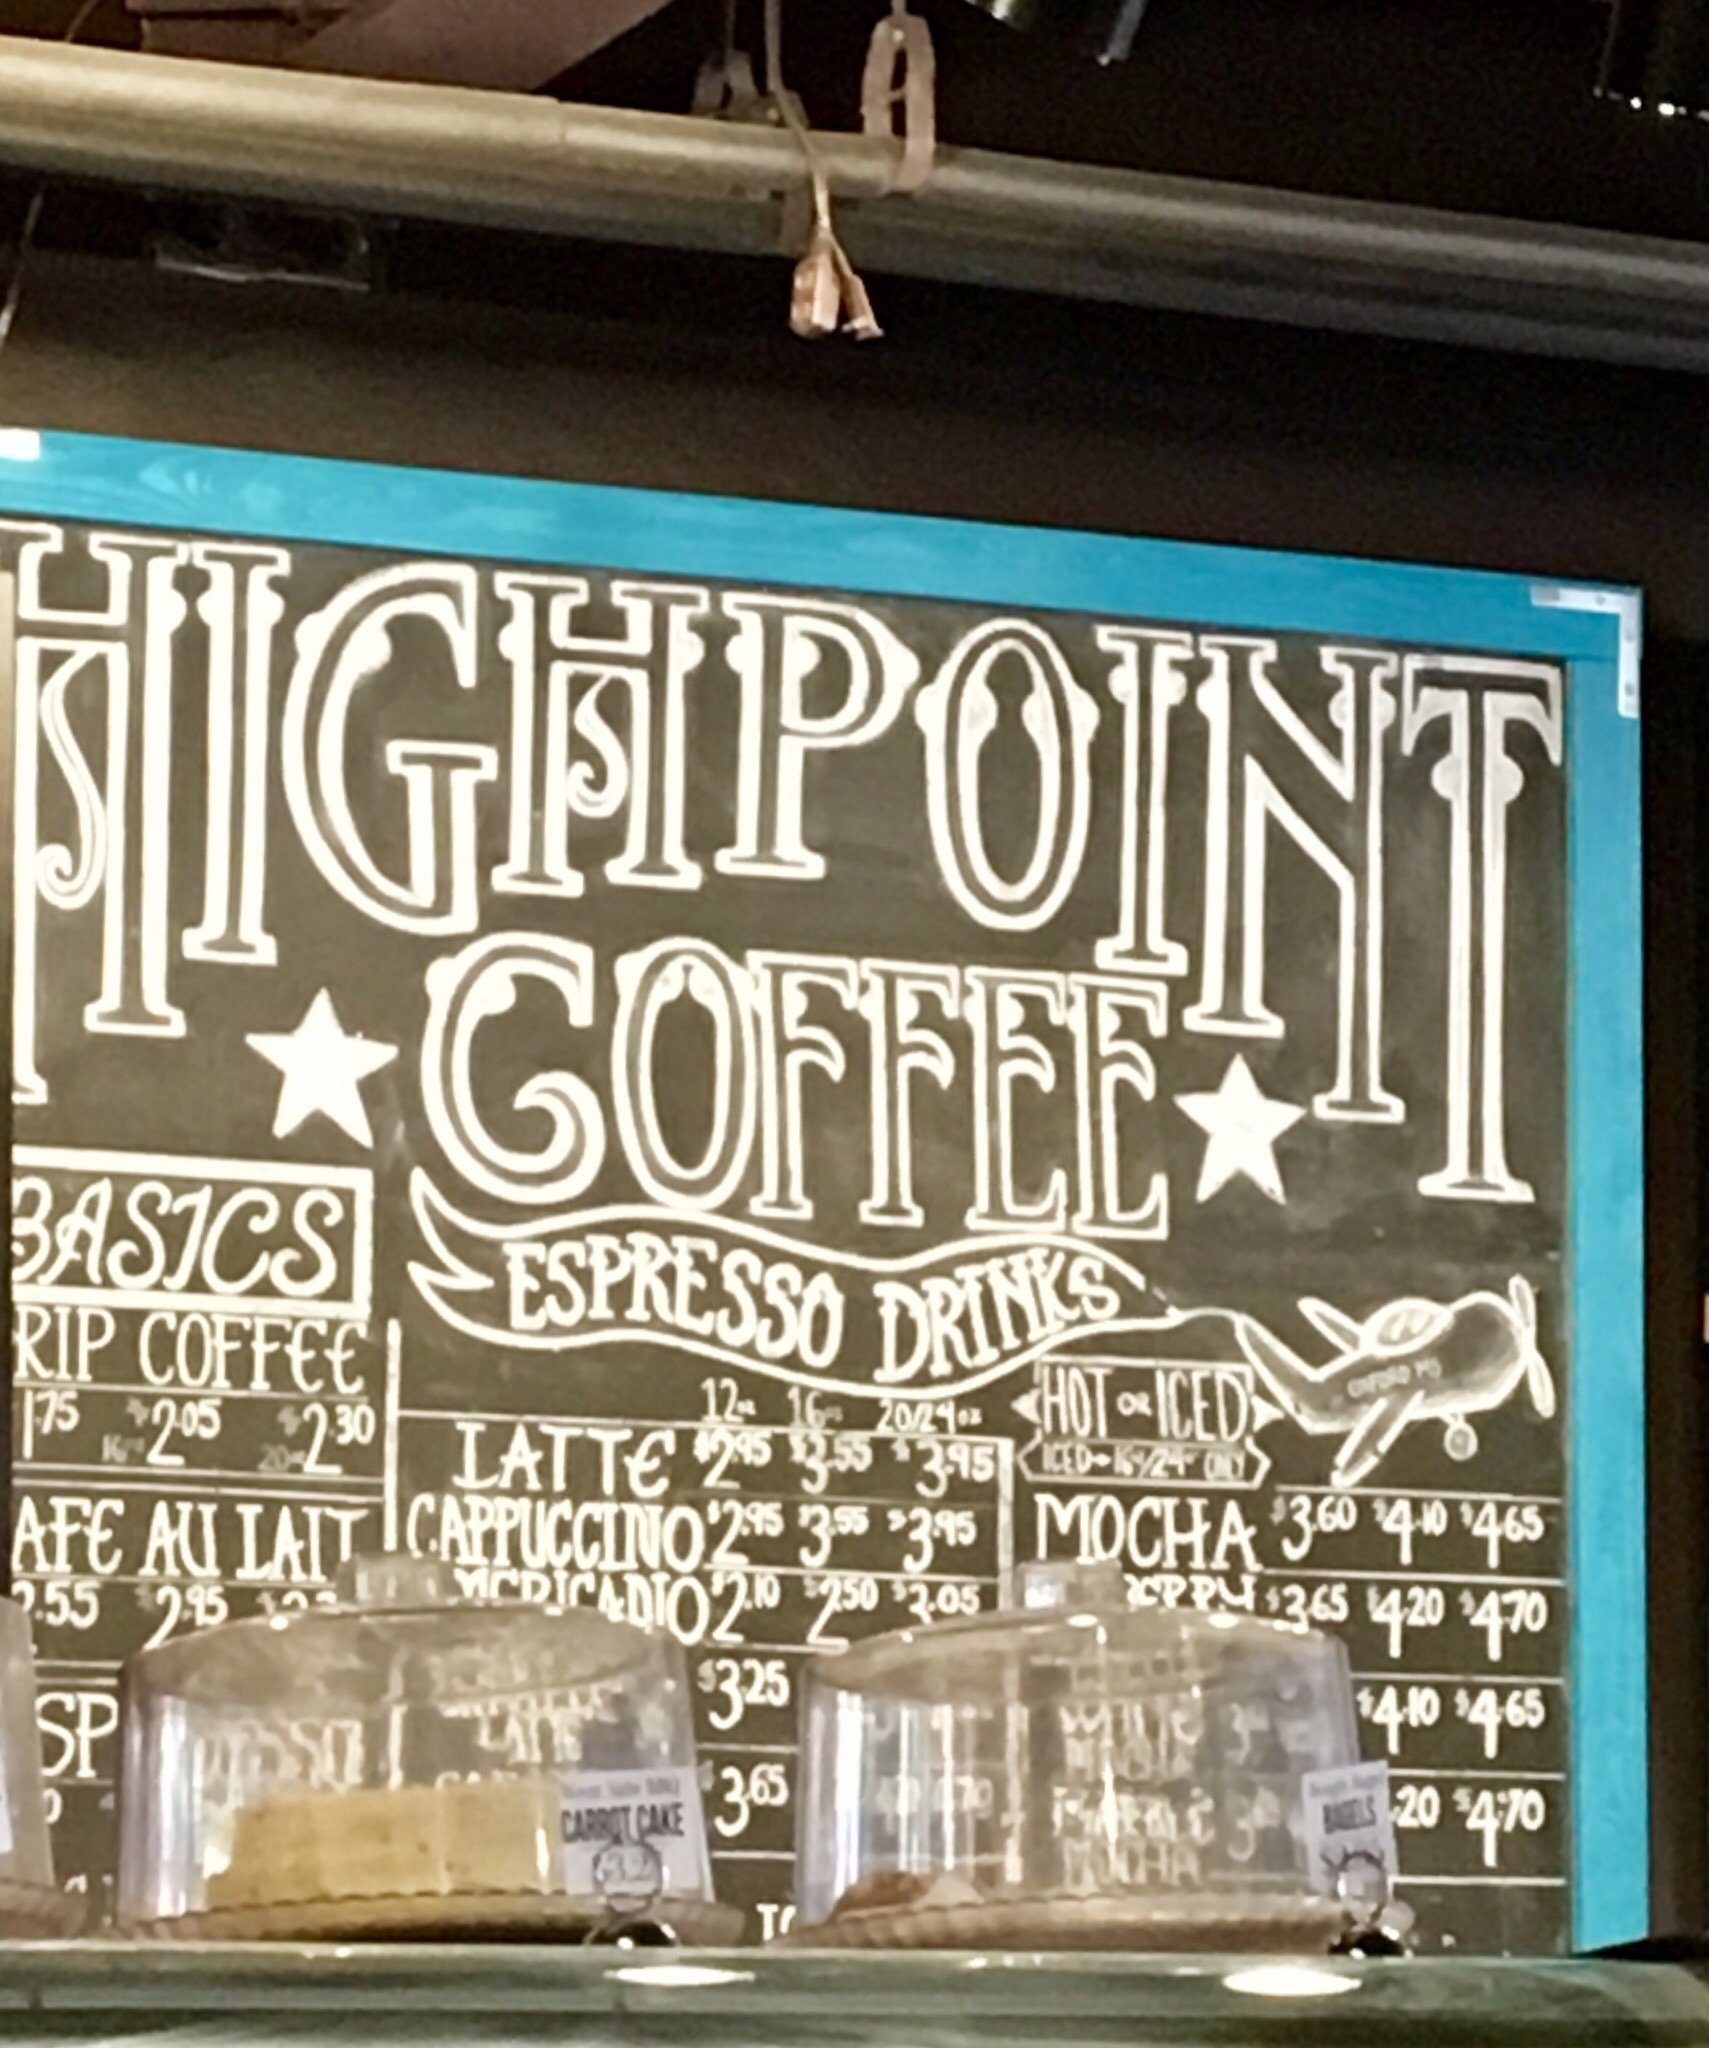 HIGHPOINT
COFFEE
BASICS
ESPRESSO DRINKS
RIP COFFEE
1.75 16oz $2.05 20oz $2.30
AFE AU LAIT
2.55 $2.95
SP
12oz 16oz 20/24oz
LATTE $2.95 $3.55 $3.95
CAPPUCCINO $2.95 $3.55 $3.95
$2.10 $2.50
$3.25
LATTE
$3.65
HOT OR ICED
ICED 16/24 ONLY
OXFORD MS
MOCHA $3.60 $4.10 $4.65
$3.65 $4.20 $4.70
WHITE
MOCHA
$4.10 $4.65
MOCHA
.20 $4.70
CARROT CAKE
BAGELS